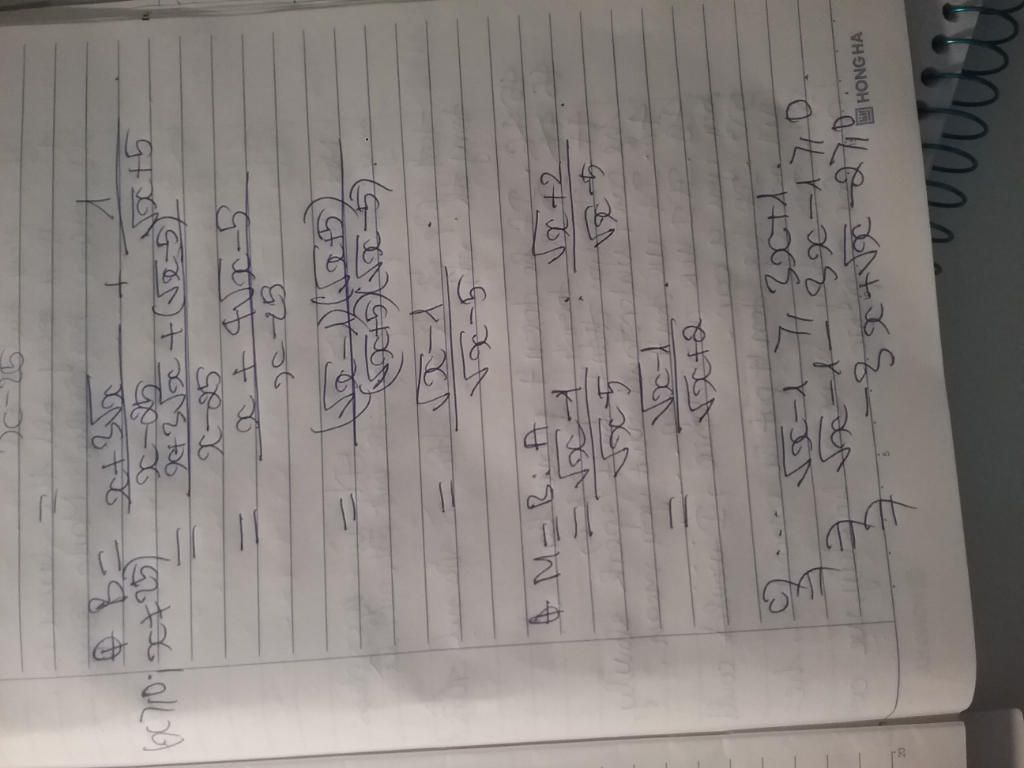 x-25
=
B = x+3√x / x-25 + 1 / √x+5
(x ≥ 0; x≠25)
= x+3√x+(√x-5) / x-25
= x+4√x-5 / x-25
= (√x-1)(√x+5) / (√x+5)(√x-5)
= √x-1 / √x-5
M = B : A
= √x-1 / √x-5 : √x+2 / √x-5
= √x-1 / √x+2
c) ...
=> √x-1 ≥ 3x+1
=> √x-1 - 3x-1 ≥ 0
=> -3x+√x-2 ≥ 0
HONG HA